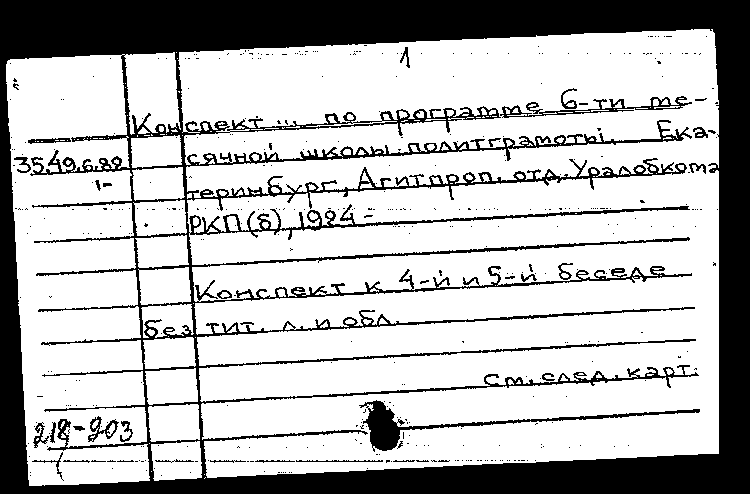 1
Конспект ... по программе 6-ти ме-
35.49.6.82 сячной школы политграмоты. Ека-
1- теринбург, Агитпроп. отд. Уралобкома
РКП(б), 1924-
Конспект к 4-й и 5-й беседе
без тит. л. и обл.
см. след. карт.
218-203